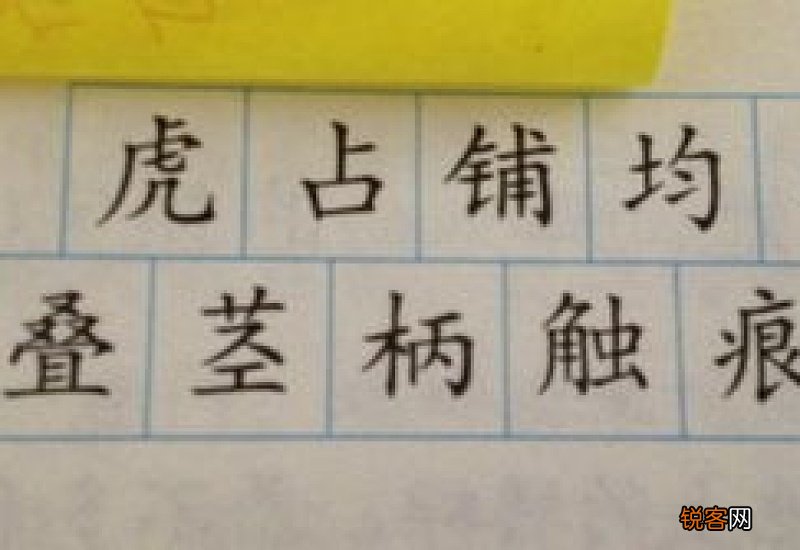 虎占铺均
叠茎柄触痕
锐客网